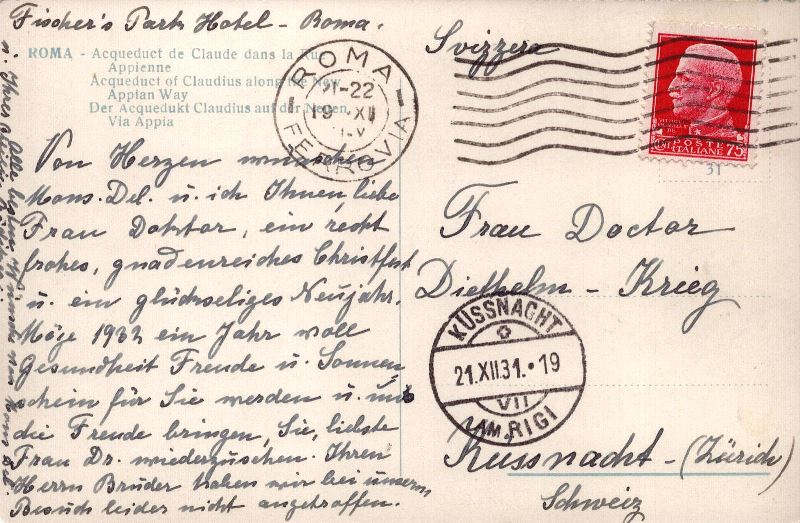 Fischer's Park Hotel - Roma.
ROMA - Acqueduct de Claude dans la Rue
Appienne
Acqueduct of Claudius along the New
Appian Way
Der Acquedukt Claudius auf der Neuen
Via Appia
Von Herzen wünschen
Mons. Del. u. ich Ihnen, liebe
Frau Doktor, ein recht
frohes, gnadenreiches Christfest
u. ein glückseliges Neujahr.
Möge 1932 ein Jahr voll
Gesundheit Freude u. Sonnen
schein für Sie werden u. uns
die Freude bringen, Sie, liebste
Frau Dr. wiederzusehen. Ihren
Herrn Bruder haben wir bei unserm
Besuch leider nicht angetroffen.
Alle
ROMA
21-22
19 XII
FERROVIA
Svizzera
POSTE
ITALIANE 75
31
Frau Doctor
Diethelm - Krieg
KÜSSNACHT
21.XII.31.•19
VII
AM RIGI
Kussnacht - (Zürich)
Schweiz